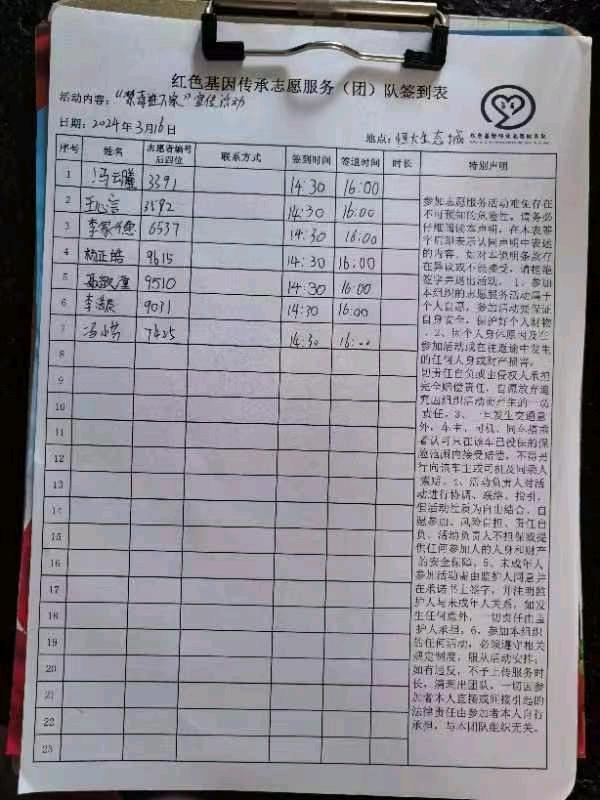 红色基因传承志愿服务（团）队签到表
活动内容：“禁毒进万家”宣传活动
日期：2024年3月16日
地点：恒大生态城
序号 姓名 志愿者编号后四位 联系方式 签到时间 签退时间 时长 特别声明
1 冯云曦 3391 14:30 16:00
2 王心言 3592 14:30 16:00
3 6537 14:30 16:00
4 杨正皓 9615 14:30 16:00
5 9510 14:30 16:00
6 9031 14:30 16:00
7 7425 14:30 16:00
8
9
10
11
12
13
14
15
16
17
18
19
20
21
22
23
参加志愿服务活动难免存在
不可预知的危险性，请务必
仔细阅读本声明，在本表签
字后即表示认同声明中表述
的内容，如对本说明条款存
在异议或不能接受，请拒绝
签字并退出活动。1、参加
本组织的志愿服务活动属于
个人自愿，参加活动要保证
自身安全，保护好个人财物
。2、因个人身体原因及在
参加活动或在往返途中发生
的任何人身或财产损害，
切责任自负或由侵权人承担
完全赔偿责任，自愿放弃追
究因组织活动而产生的一切
责任。3、一旦发生交通意
外，车主、司机、同车搭乘
者认可只在该车已投保的保
险范围内接受赔偿，不得另
行向该车主或司机及同乘人
索赔。4、活动负责人对活
动进行协调、联络、指引，
但活动性质为自由结合、自
愿参加、风险自担、责任自
负，活动负责人不担保或提
供任何参加人的人身和财产
的安全保障。5、未成年人
参加活动需由监护人同意并
在承诺书上签字，并注明监
护人与未成年人关系，如发
生任何意外，一切责任由监
护人承担。6、参加本组织
的任何活动，必须遵守相关
规定制度，服从活动安排，
如有违反，不予上传服务时
长，清理出团队。一切因参
加者本人直接或间接引起的
法律责任由参加者本人自行
承担，与本团队组织无关。